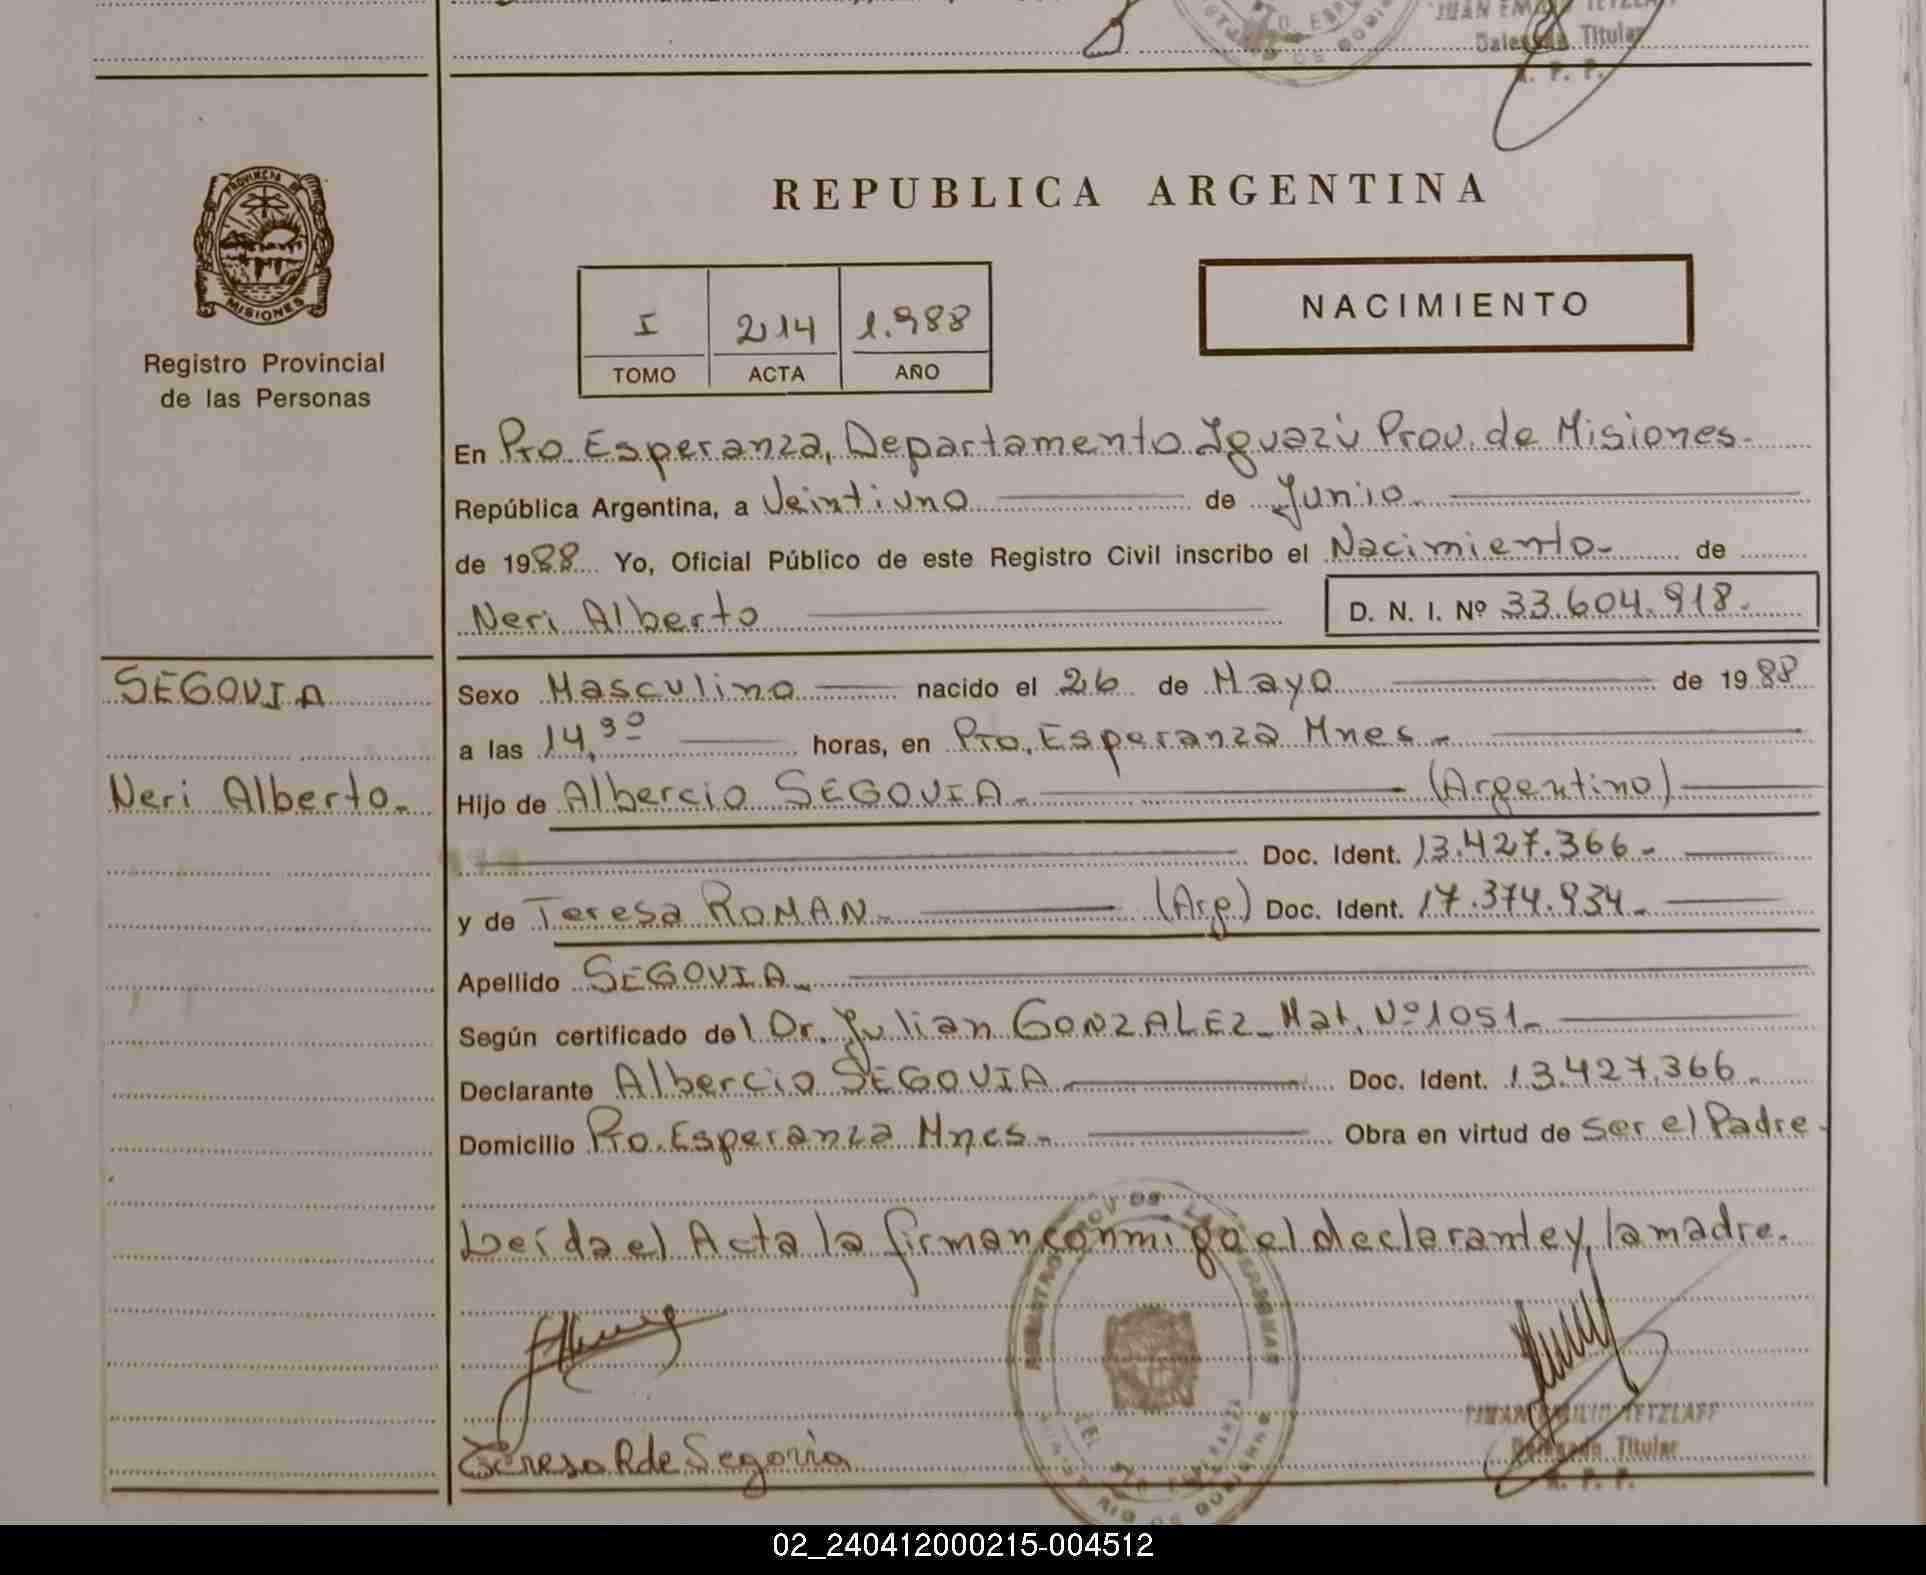 JUAN EMILIO TETZLAFF
Delegado Titular
R. P. P.
PROVINCIA DE
MISIONES
Registro Provincial
de las Personas
REPUBLICA ARGENTINA
I 214 1.988
TOMO ACTA AÑO
NACIMIENTO
En Pto. Esperanza, Departamento Iguazú Prov. de Misiones.
República Argentina, a Veintiuno de Junio.
de 1988 Yo, Oficial Público de este Registro Civil inscribo el Nacimiento- de
Neri Alberto
D. N. I. Nº 33.604.918.
SEGOVIA
Neri Alberto.
Sexo Masculino nacido el 26 de Mayo de 1988
a las 14,30 horas, en Pto. Esperanza Mnes.
Hijo de Albercio SEGOVIA. (Argentino)
Doc. Ident. 13.427.366.
y de Teresa ROMAN. (Arg.) Doc. Ident. 17.374.934.
Apellido SEGOVIA.
Según certificado del Dr. Julian GONZALEZ. Mat. Nº 1051.
Declarante Albercio SEGOVIA Doc. Ident. 13.427.366.
Domicilio Pto. Esperanza Mnes. Obra en virtud de ser el Padre.
Leída el Acta la firman conmigo el declarante y la madre.
Teresa R de Segovia
JUAN EMILIO TETZLAFF
Delegado Titular
R. P. P.
02_240412000215-004512